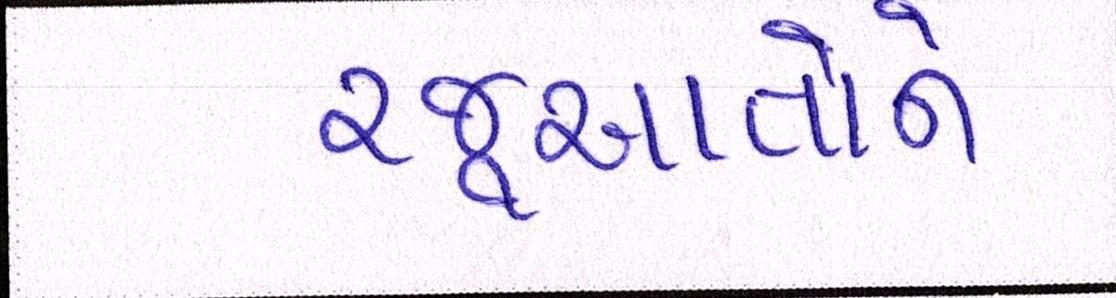 રજૂઆતોને